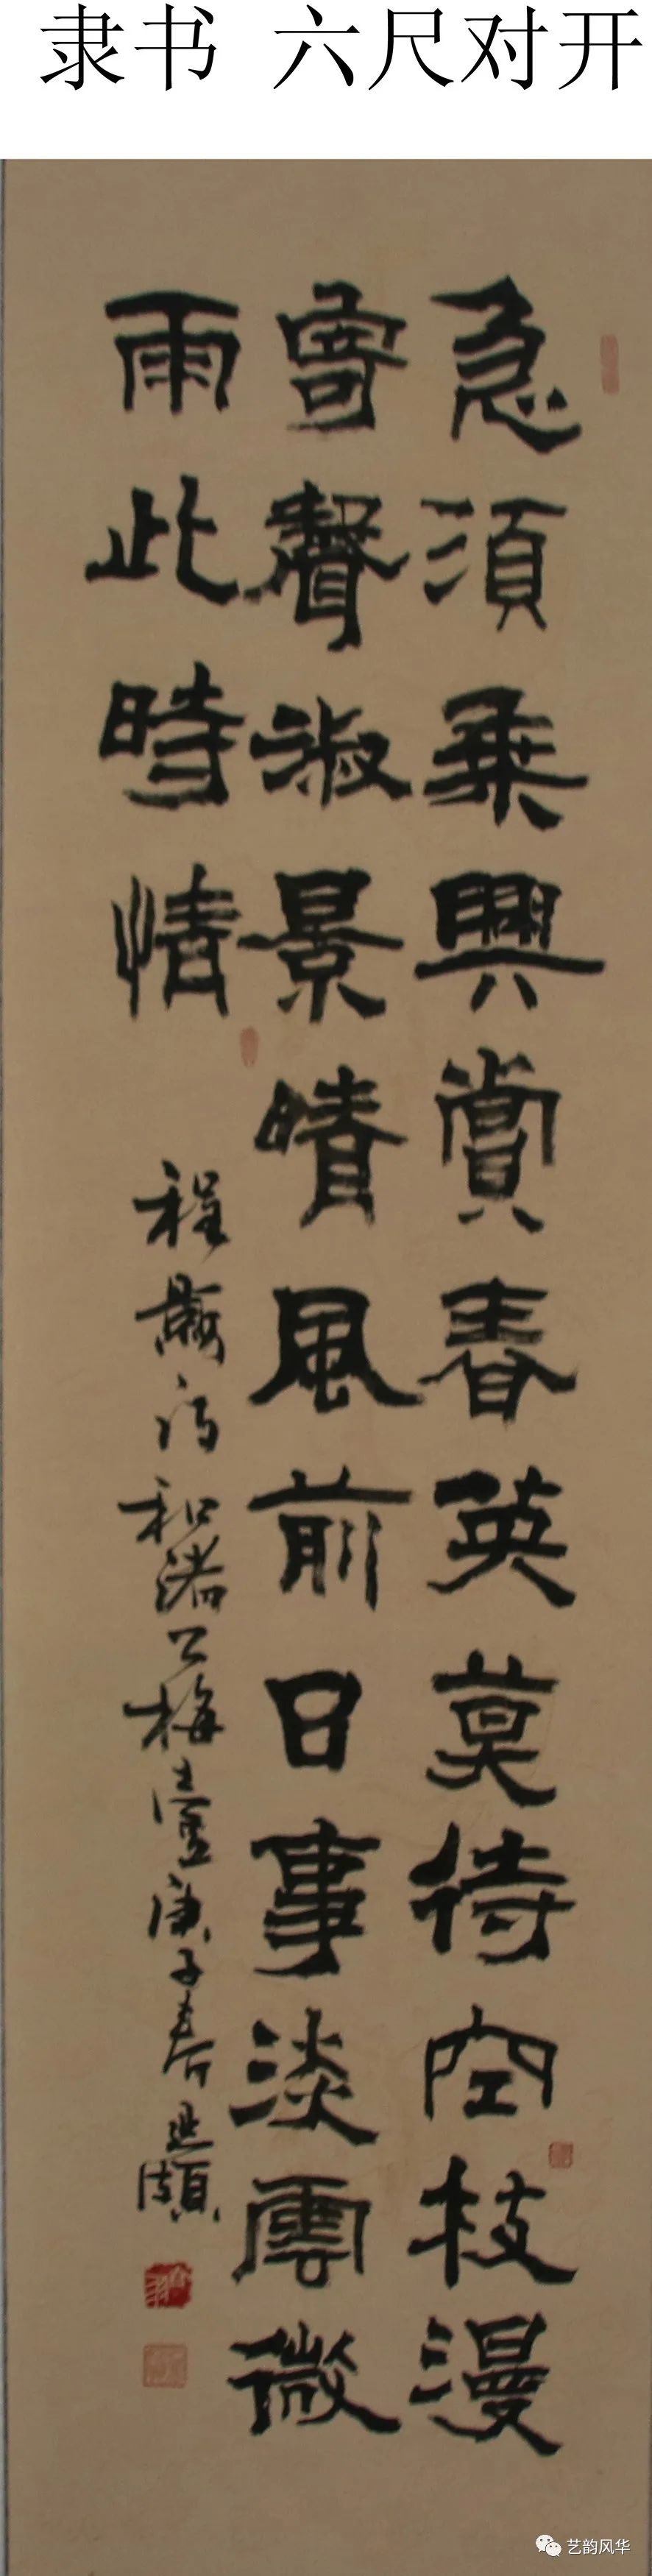 隶书 六尺对开
急須乗興賞春英莫待空枝漫
寄聲淑景晴風前日事淡雲微
雨此時情
程颢詩和諸公梅臺庚子春
艺韵风华